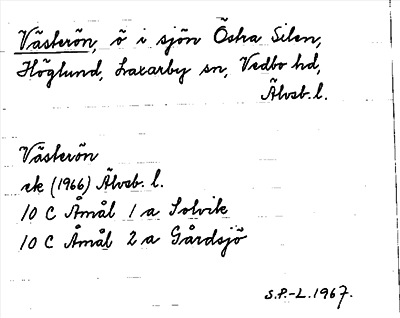 Västerön, ö i sjön Östra Silen,
Höglund, Laxarby sn, Vedbo hd,
Älvsb. l.
Västerön
ek (1966) Älvsb. l.
10 C Åmål 1 a Solvik
10 C Åmål 2 a Gårdsjö
S.P.-L. 1967.